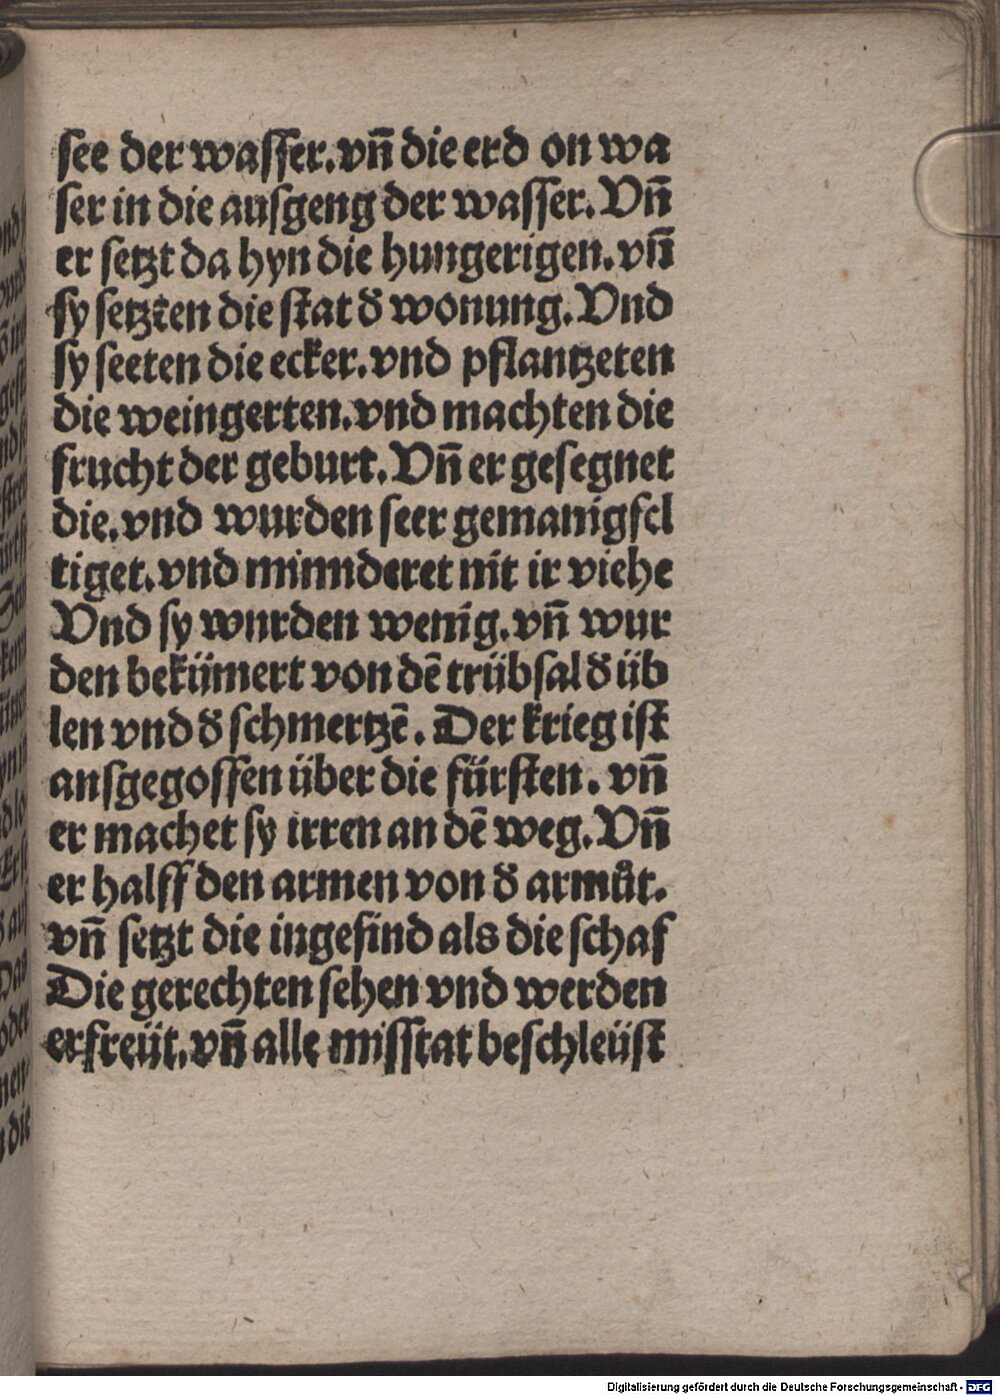 see der wasser. vn̄ die erd on wa
ser in die ausgeng der wasser. Vn̄
er setzt da hyn die hungerigen. vn̄
sy setztēn die stat d̕ wonung. Vnd
sy seeten die ecker. vnd pflantzeten
die weingerten. vnd machten die
frucht der geburt. Vn̄ er gesegnet
die. vnd wurden seer gemanigfel
tiget. vnd minnderet nit ir viehe
Vnd sy wurden wenig. vn̄ wur
den bekümert von dē trübsal d̕ üb
len vnd d̕ schmertzē. Der krieg ist
ausgegossen über die fürsten. vn̄
er machet sy irren an dē weg. Vn̄
er halff den armen von d̕ armůt.
vn̄ setzt die ingesind als die schaf
Die gerechten sehen vnd werden
erfreüt. vn̄ alle misstat beschleüst
Digitalisierung gefördert durch die Deutsche Forschungsgemeinschaft - DFG